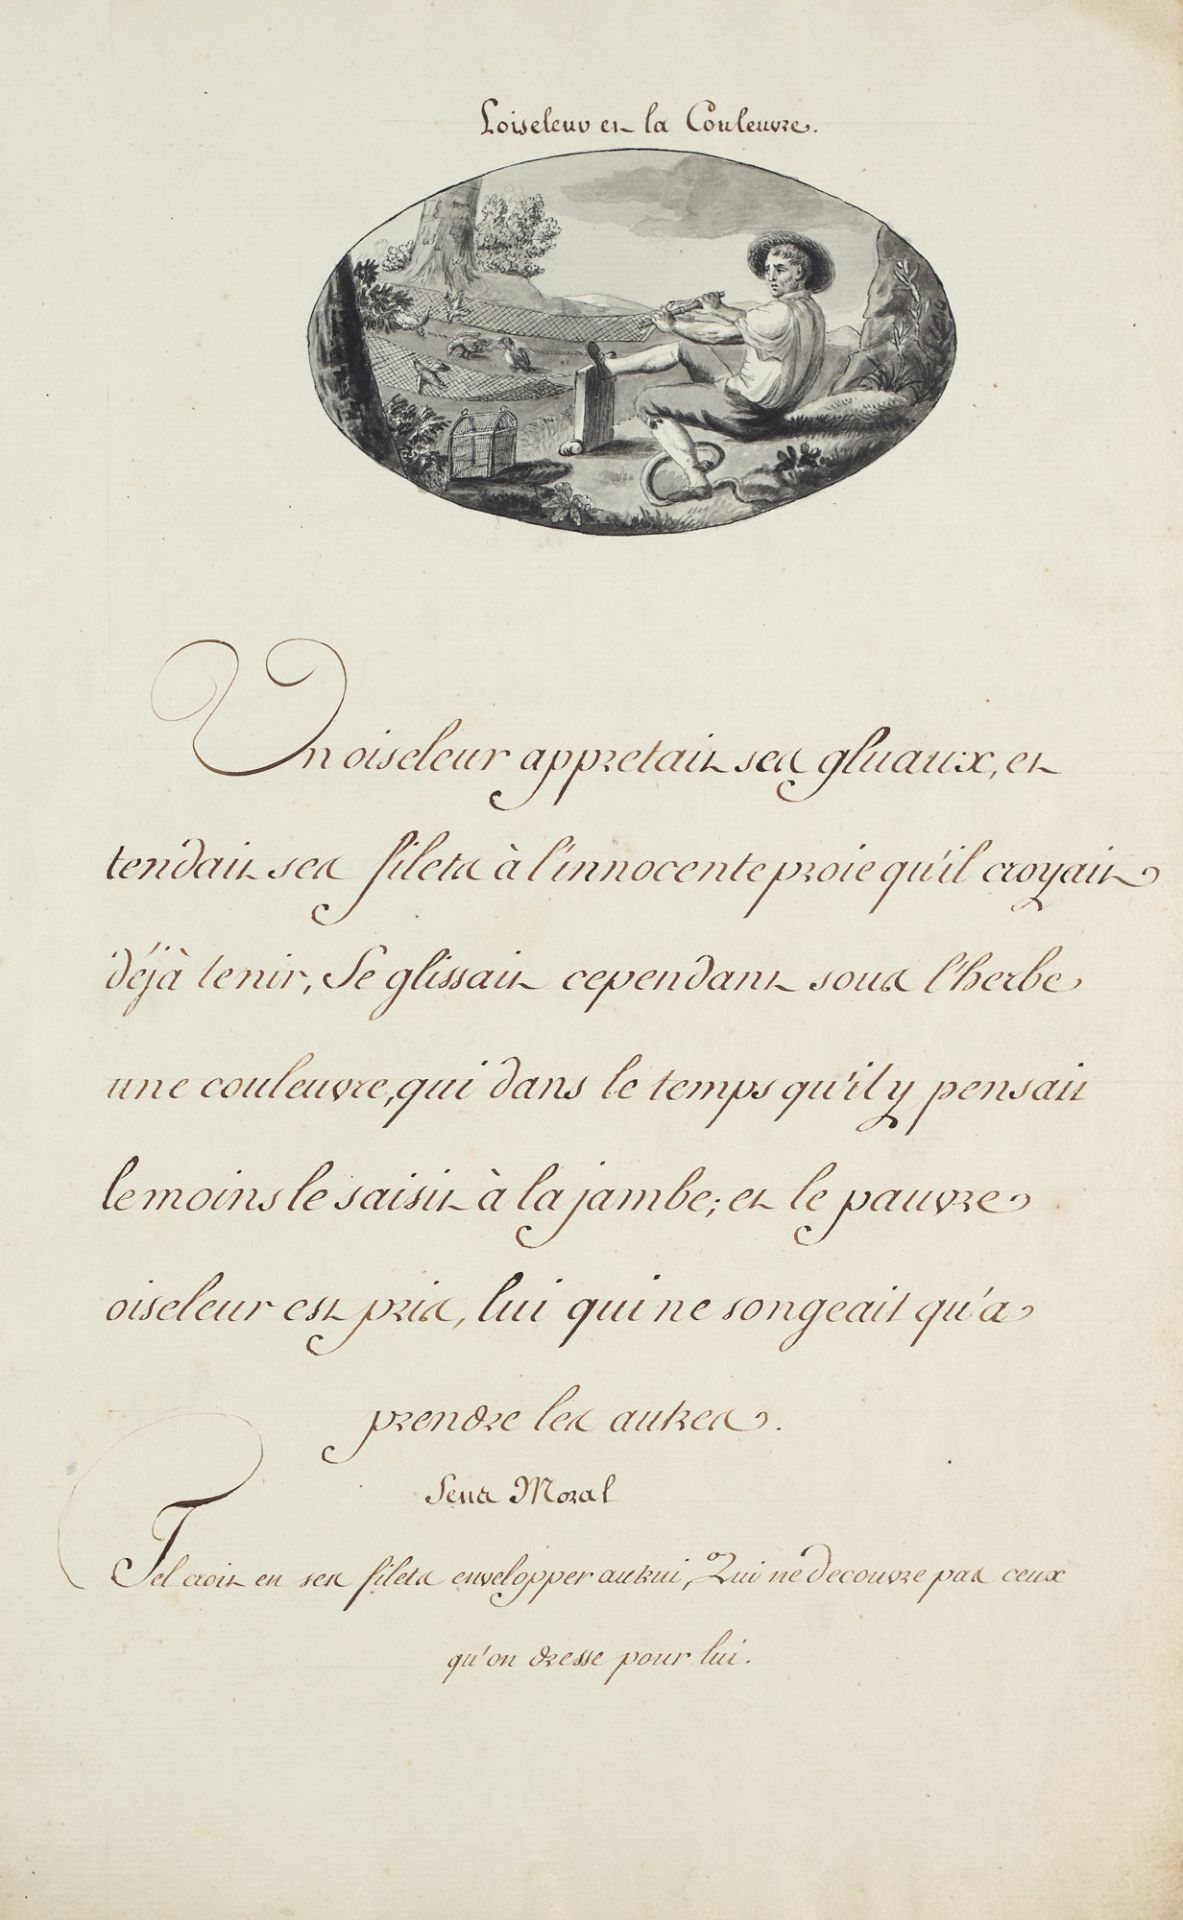 Loiseleur et la Couleuvre.
Un oiseleur appretait ses gluaux, et
tendait ses filets à l'innocente proie qu'il croyait
déjà tenir, Se glissait cependant sous l'herbe
une couleuvre, qui dans le temps qu'il y pensait
le moins le saisit à la jambe; et le pauvre
oiseleur est pris, lui qui ne songeait qu'a
prendre les autres.
Sens Moral
Tel croit en ses filets envelopper autrui, Qui ne decouvre pas ceux
qu'on dresse pour lui.